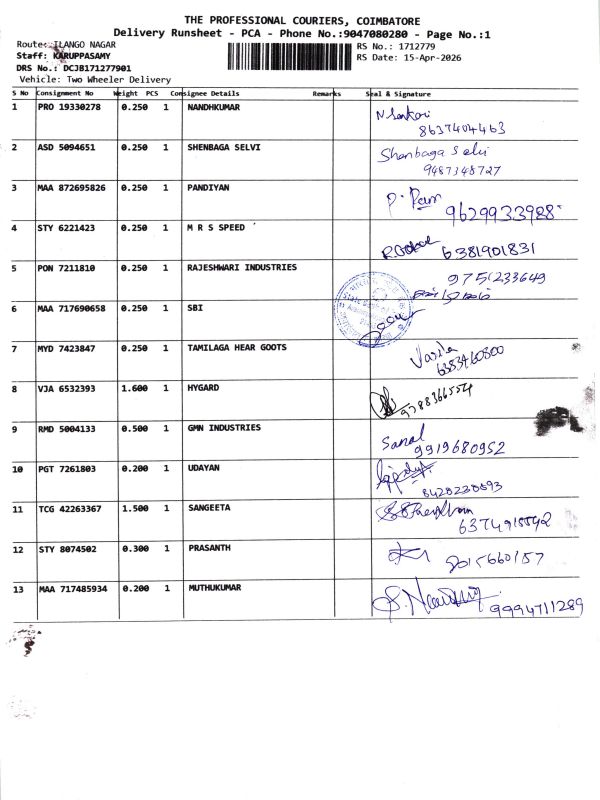 THE PROFESSIONAL COURIERS, COIMBATORE
Delivery Runsheet - PCA - Phone No.:9047080280 - Page No.:1
Route: ILANGO NAGAR
RS No.: 1712779
Staff: KARUPPASAMY
RS Date: 15-Apr-2026
DRS No.: DCJB171277901
Vehicle: Two Wheeler Delivery
S No Consignment No Weight PCS Consignee Details Remarks Seal & Signature
1 PRO 19330278 0.250 1 NANDHKUMAR
8637404463
2 ASD 5094651 0.250 1 SHENBAGA SELVI Shenbaga Selvi
9487348727
3 MAA 872695826 0.250 1 PANDIYAN
9629933988
4 STY 6221423 0.250 1 M R S SPEED 6381901831
5 PON 7211810 0.250 1 RAJESHWARI INDUSTRIES 9751233649
6 MAA 717690658 0.250 1 SBI
7 MYD 7423847 0.250 1 TAMILAGA HEAR GOOTS
6383460800
8 VJA 6532393 1.600 1 HYGARD
9788366554
9 RMD 5004133 0.500 1 GMN INDUSTRIES Sanal
9919680952
10 PGT 7261803 0.200 1 UDAYAN
8428230893
11 TCG 42263367 1.500 1 SANGEETA
6374918542
12 STY 8074502 0.300 1 PRASANTH
9015660157
13 MAA 717485934 0.200 1 MUTHUKUMAR
9994711289